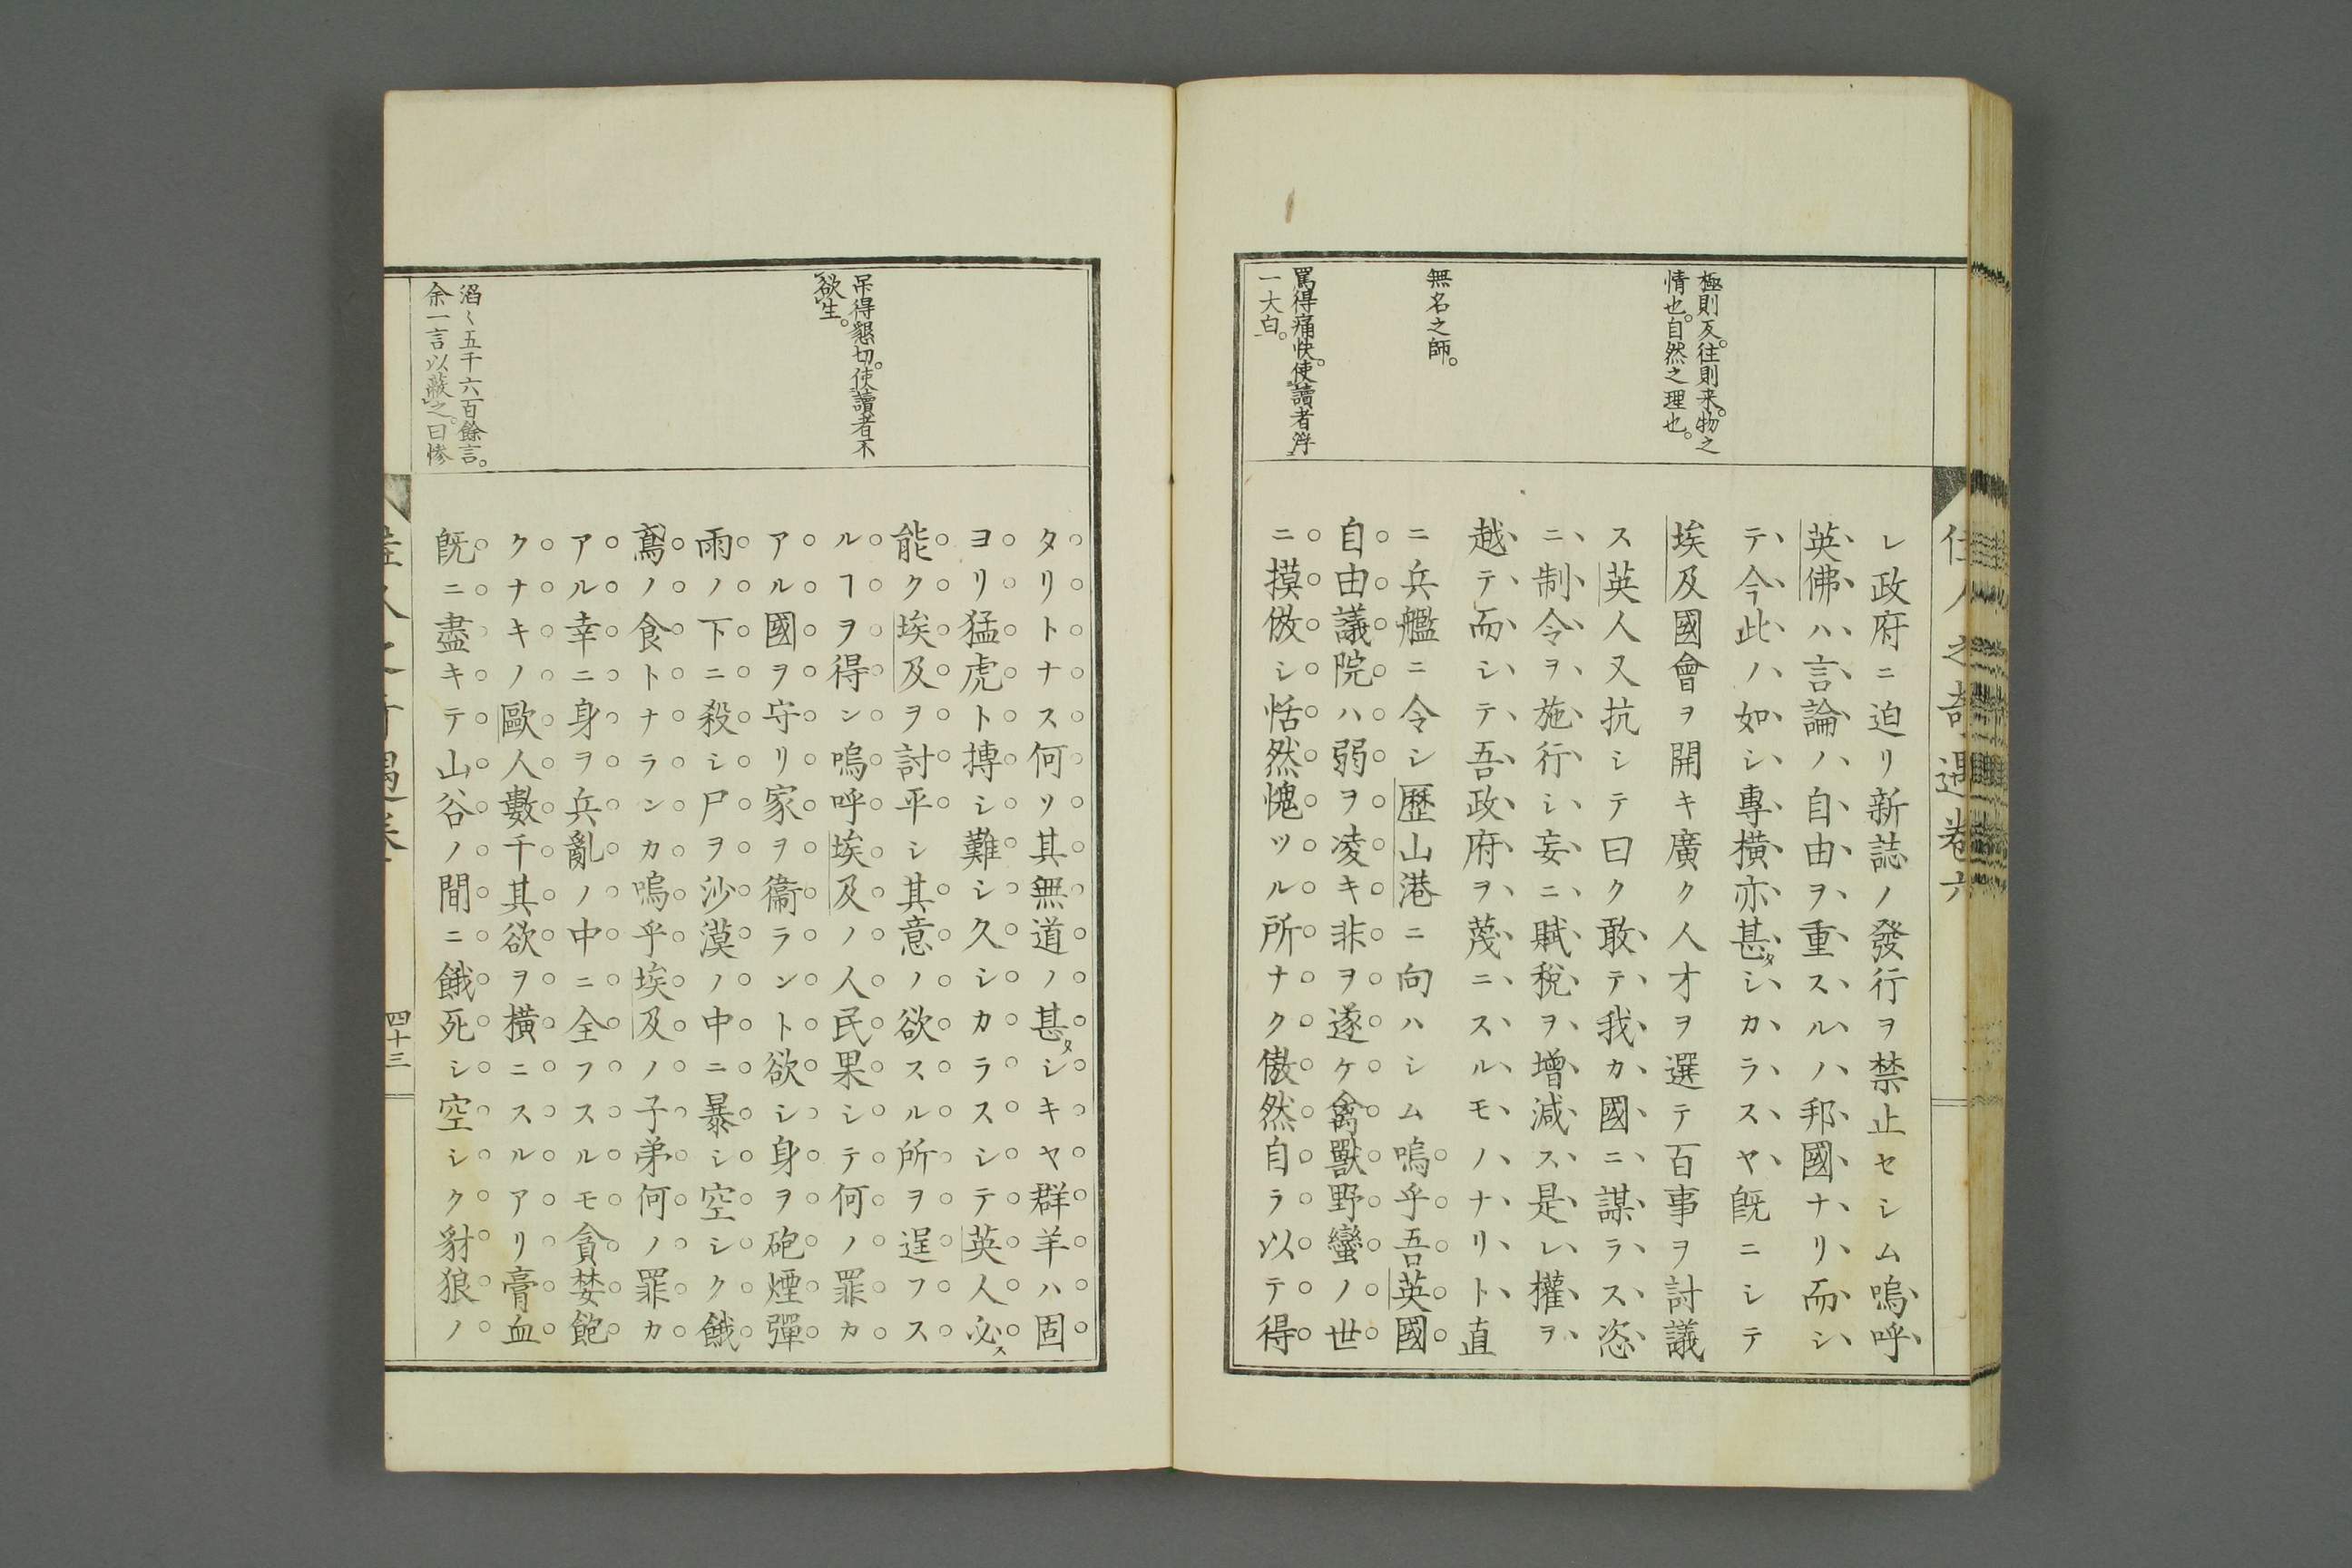 佳人之奇遇卷六
極則反。往則来。物之
情也。自然之理也。
無名之師。
罵得痛快。使讀者浮
一大白。
レ政府ニ迫リ新誌ノ發行ヲ禁止セシム嗚呼
英佛ハ言論ノ自由ヲ重スルノ邦國ナリ而シ
テ今此ノ如シ專橫亦甚タシカラスヤ既ニシテ
埃及國會ヲ開キ廣ク人才ヲ選テ百事ヲ討議
ス英人又抗シテ曰ク敢テ我カ國ニ謀ラス恣
ニ制令ヲ施行シ妄ニ賦稅ヲ增減ス是レ權ヲ
越テ而シテ吾政府ヲ蔑ニスルモノナリト直
ニ兵艦ニ令シ歷山港ニ向ハシム嗚乎吾英國
自由議院ハ弱ヲ凌キ非ヲ遂ケ禽獸野蠻ノ世
ニ摸倣シ恬然愧ツル所ナク傲然自ラ以テ得
吊得懇切。使讀者不
欲生。
滔〻五千六百餘言。
余一言以蔽之。曰惨
タリトナス何ソ其無道ノ甚タシキヤ群羊ハ固
ヨリ猛虎ト搏シ難シ久シカラスシテ英人必ス
能ク埃及ヲ討平シ其意ノ欲スル所ヲ逞フス
ルヿヲ得ン嗚呼埃及ノ人民果シテ何ノ罪カ
アル國ヲ守リ家ヲ衞ラント欲シ身ヲ砲煙彈
雨ノ下ニ殺シ尸ヲ沙漠ノ中ニ暴シ空シク餓
鳶ノ食トナランカ嗚乎埃及ノ子弟何ノ罪カ
アル幸ニ身ヲ兵亂ノ中ニ全フスルモ貪婪飽
クナキノ歐人數千其欲ヲ橫ニスルアリ膏血
既ニ盡キテ山谷ノ間ニ餓死シ空シク豺狼ノ
四十三